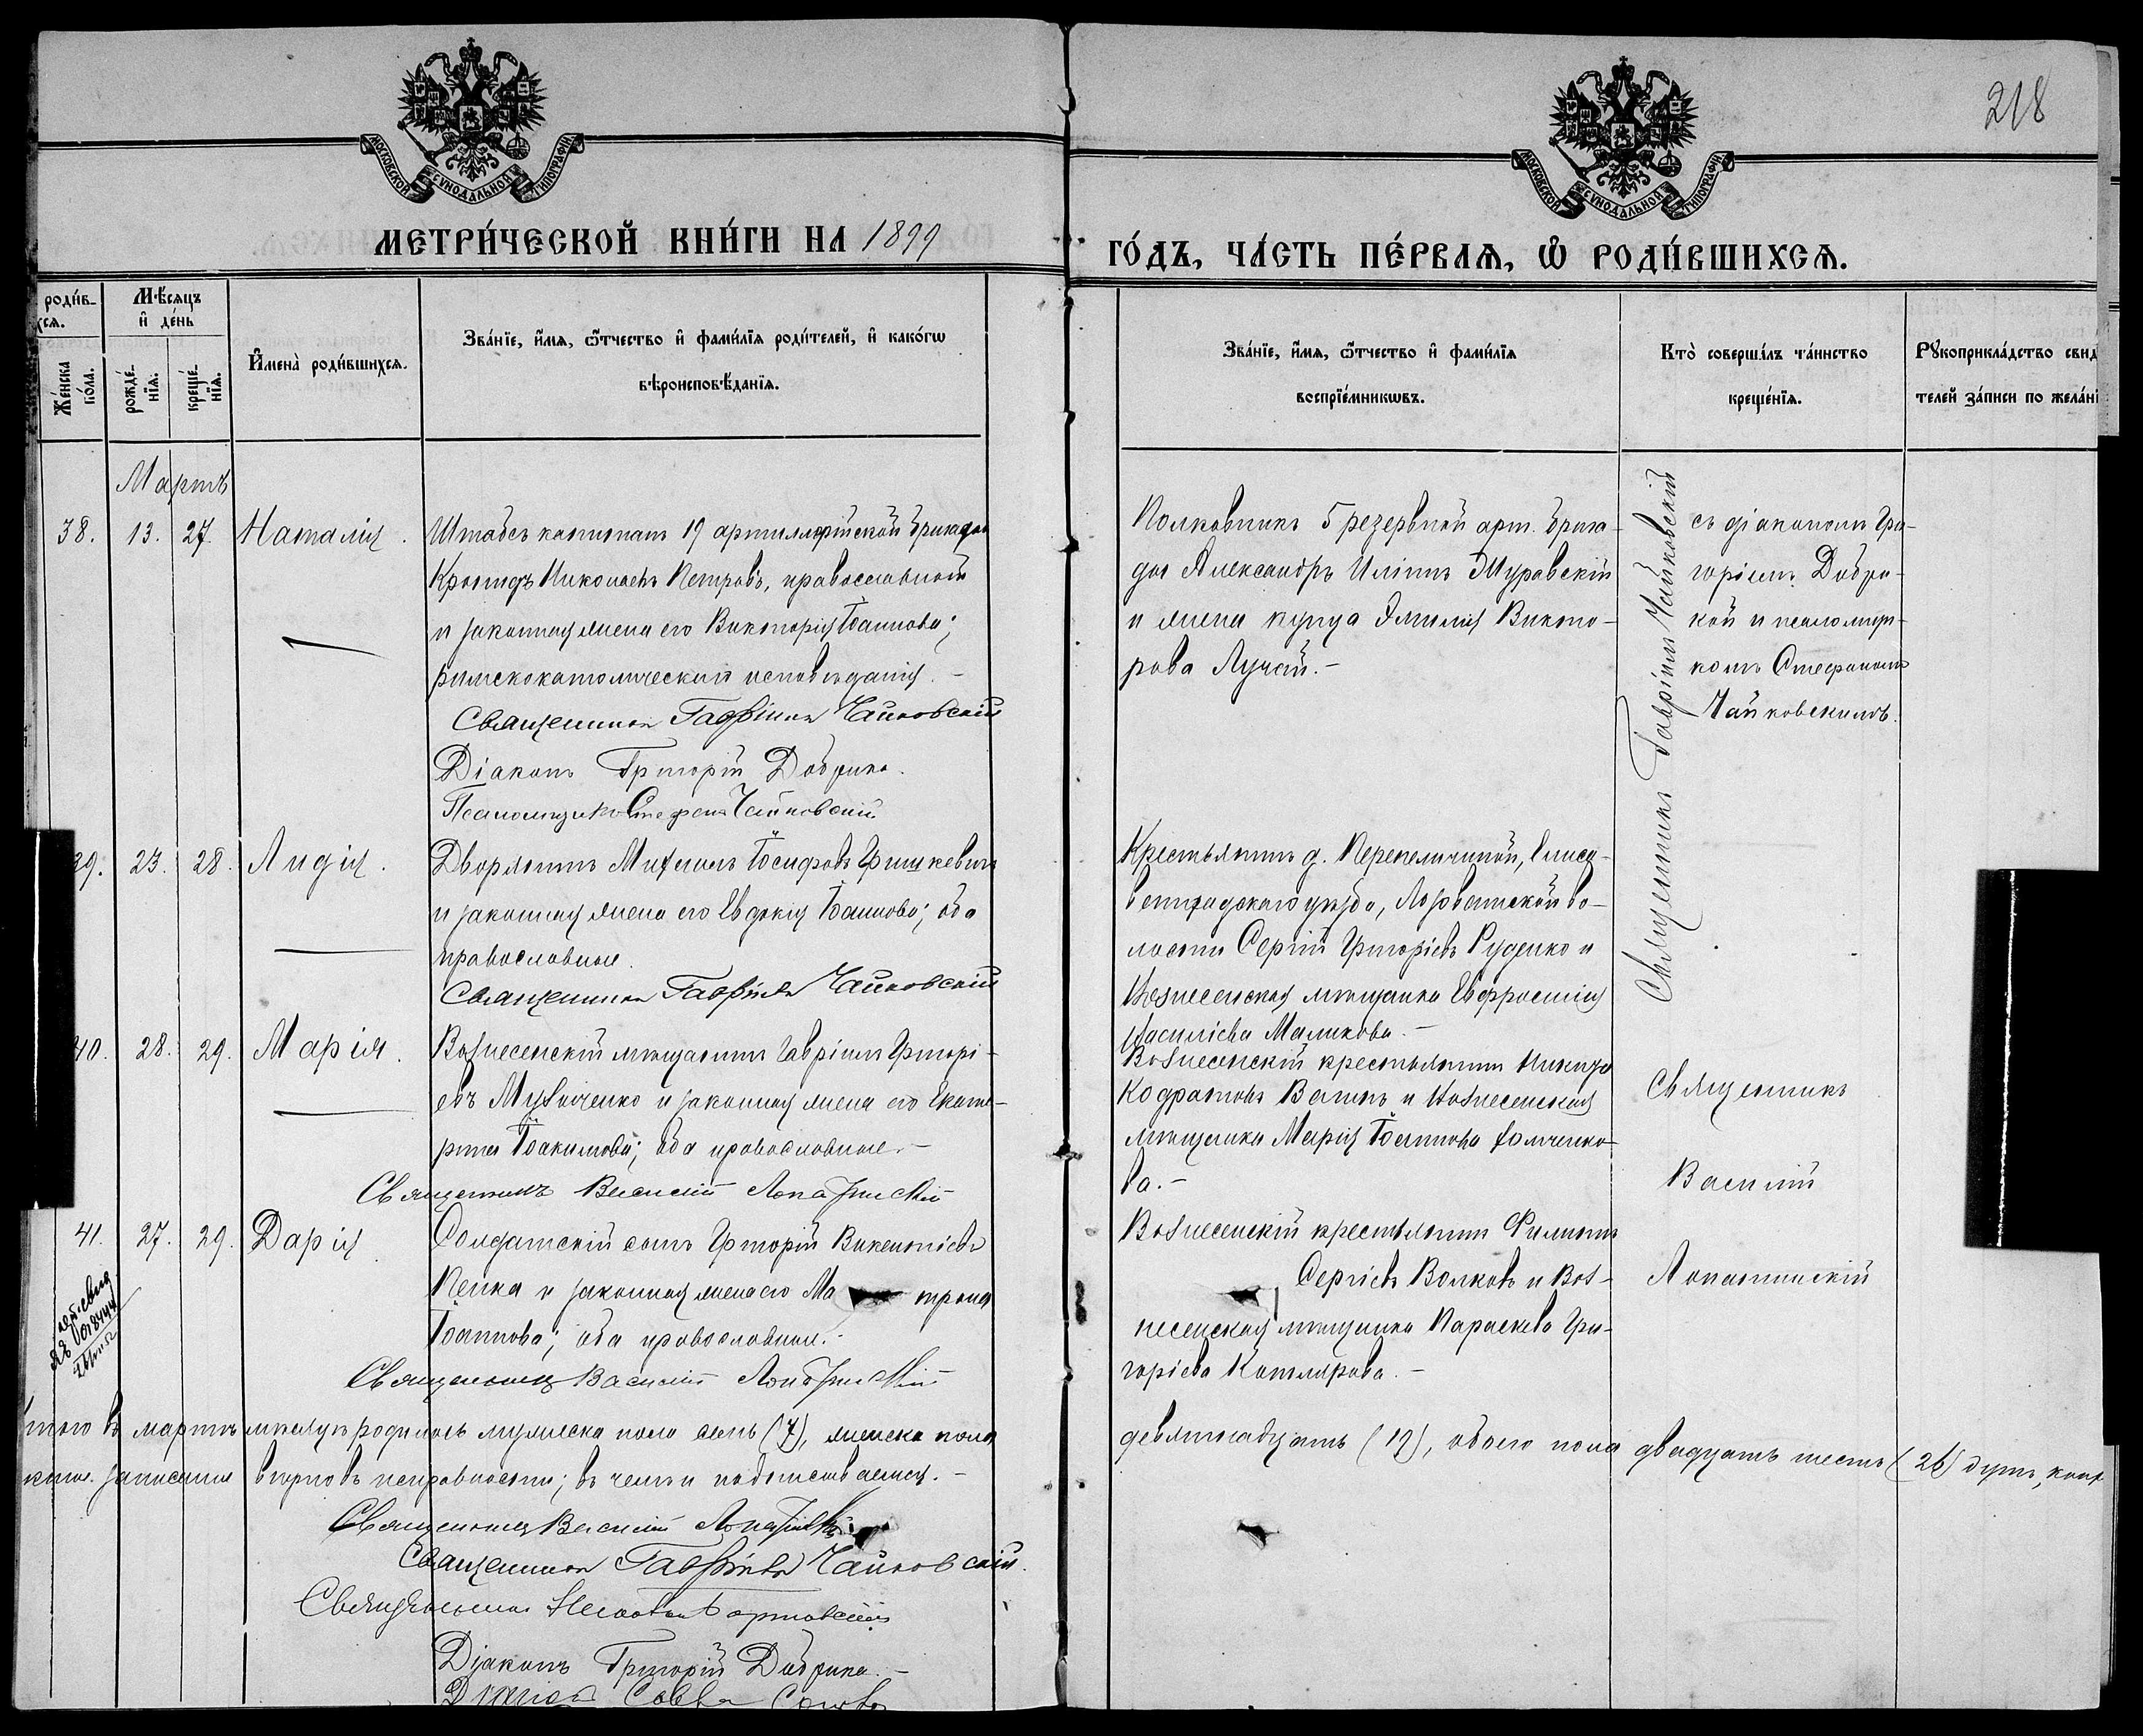 218
МОСКОВСКОЙ СѴНОДАЛЬНОЙ ТИПОГРАФІИ
МОСКОВСКОЙ СѴНОДАЛЬНОЙ ТИПОГРАФІИ
МЕТРИ́ЧЕСКОЙ КНИ́ГИ НА 1899
ГО́ДЪ, ЧА́СТЬ ПЕ́РВАѦ, Ѿ РОДИ́ВШИХСѦ.
роди́в-
хсѧ.
Же́нска по́ла.
Мѣ́сѧцъ и҆ де́нь
рожде́нїѧ.
креще́нїѧ.
И҆мена̀ роди́вшихсѧ.
Зва́нїе, и҆́мѧ, ѻ҆́тчество и҆ фами́лїѧ роди́телей, и҆ како́гѡ
вѣроисповѣ́данїѧ.
Зва́нїе, и҆́мѧ, ѻ҆́тчество и҆ фами́лїѧ
воспрїе́мникѡвъ.
Кто̀ соверша́лъ та́инство
креще́нїѧ.
Рꙋкоприкла́дство свид
телей за́писи по жела́нї
Мартъ
38. 13. 27. Наталія.
Штабсъ капитанъ 19 артиллерійской бригады
Николаевъ Петровъ, православной
и законная жена его Викторія Іоаннова;
римскокатолическаго исповѣданія.-
Священникъ Гавріилъ Чайковскій
Діаконъ Григорій Добрика.
Псаломщикъ Стефанъ Чайковскій
Полковникъ 5 резервной арт. брига-
ды Александръ Иліинъ Журавскій
и жена купца Эмилія Викто-
рова Лучай.-
Священникъ Гавріилъ Чайковскій
съ діакономъ Гри-
горіемъ Добри-
кой и псаломщи-
комъ Стефаномъ
Чайковскимъ.
39. 23. 28. Лидія.
Дворянинъ Михаилъ Іосифовъ Гришкевичъ
и законная жена его Евдокія Іоаннова; оба
православные.
Священникъ Гавріилъ Чайковскій
Крестьянинъ д. Перепеличиной, Елиса-
ветградскаго уѣзда, Лозоватской во-
лости Сергій Григоріевъ Руденко и
Вознесенская мѣщанка Евфросинія
Василіева Маликова.-
40. 28. 29. Марія.
Вознесенскій мѣщанинъ Гавріилъ Григорі-
евъ Музыченко и законная жена его Екате-
рина Іоакимова; оба православные.-
Священникъ Василій Лопатинскій
Вознесенскій крестьянинъ Никита
Кодратовъ Валинъ и Вознесенская
мѣщанка Марія Іоаннова Фомченко-
ва.-
Священникъ
Василій
Лопатинскій
41. 27. 29. Дарія.
Солдатскій сынъ Григорій Викентіевъ
Пенка и законная жена его Ма трона
Іоаннова; оба православные.-
Священникъ Василій Лопатинскій
Вознесенскій крестьянинъ Филиппъ
Сергіевъ Волковъ и Воз-
несенская мѣщанка Параскева Гри-
горіева Котлярова.-
того въ мартѣ мѣсяцѣ родилось мужеска пола семь (7), женска пола
девятнадцать (19), обоего пола двадцать шесть (26) душъ, кот
записаны вѣрно въ исправности; въ чемъ и подписываемся.-
Священникъ Василій Лопатинскій
Священникъ Гавріилъ Чайковскій.
Священникъ
Діаконъ Григорій Добрика.-
Діаконъ Савва